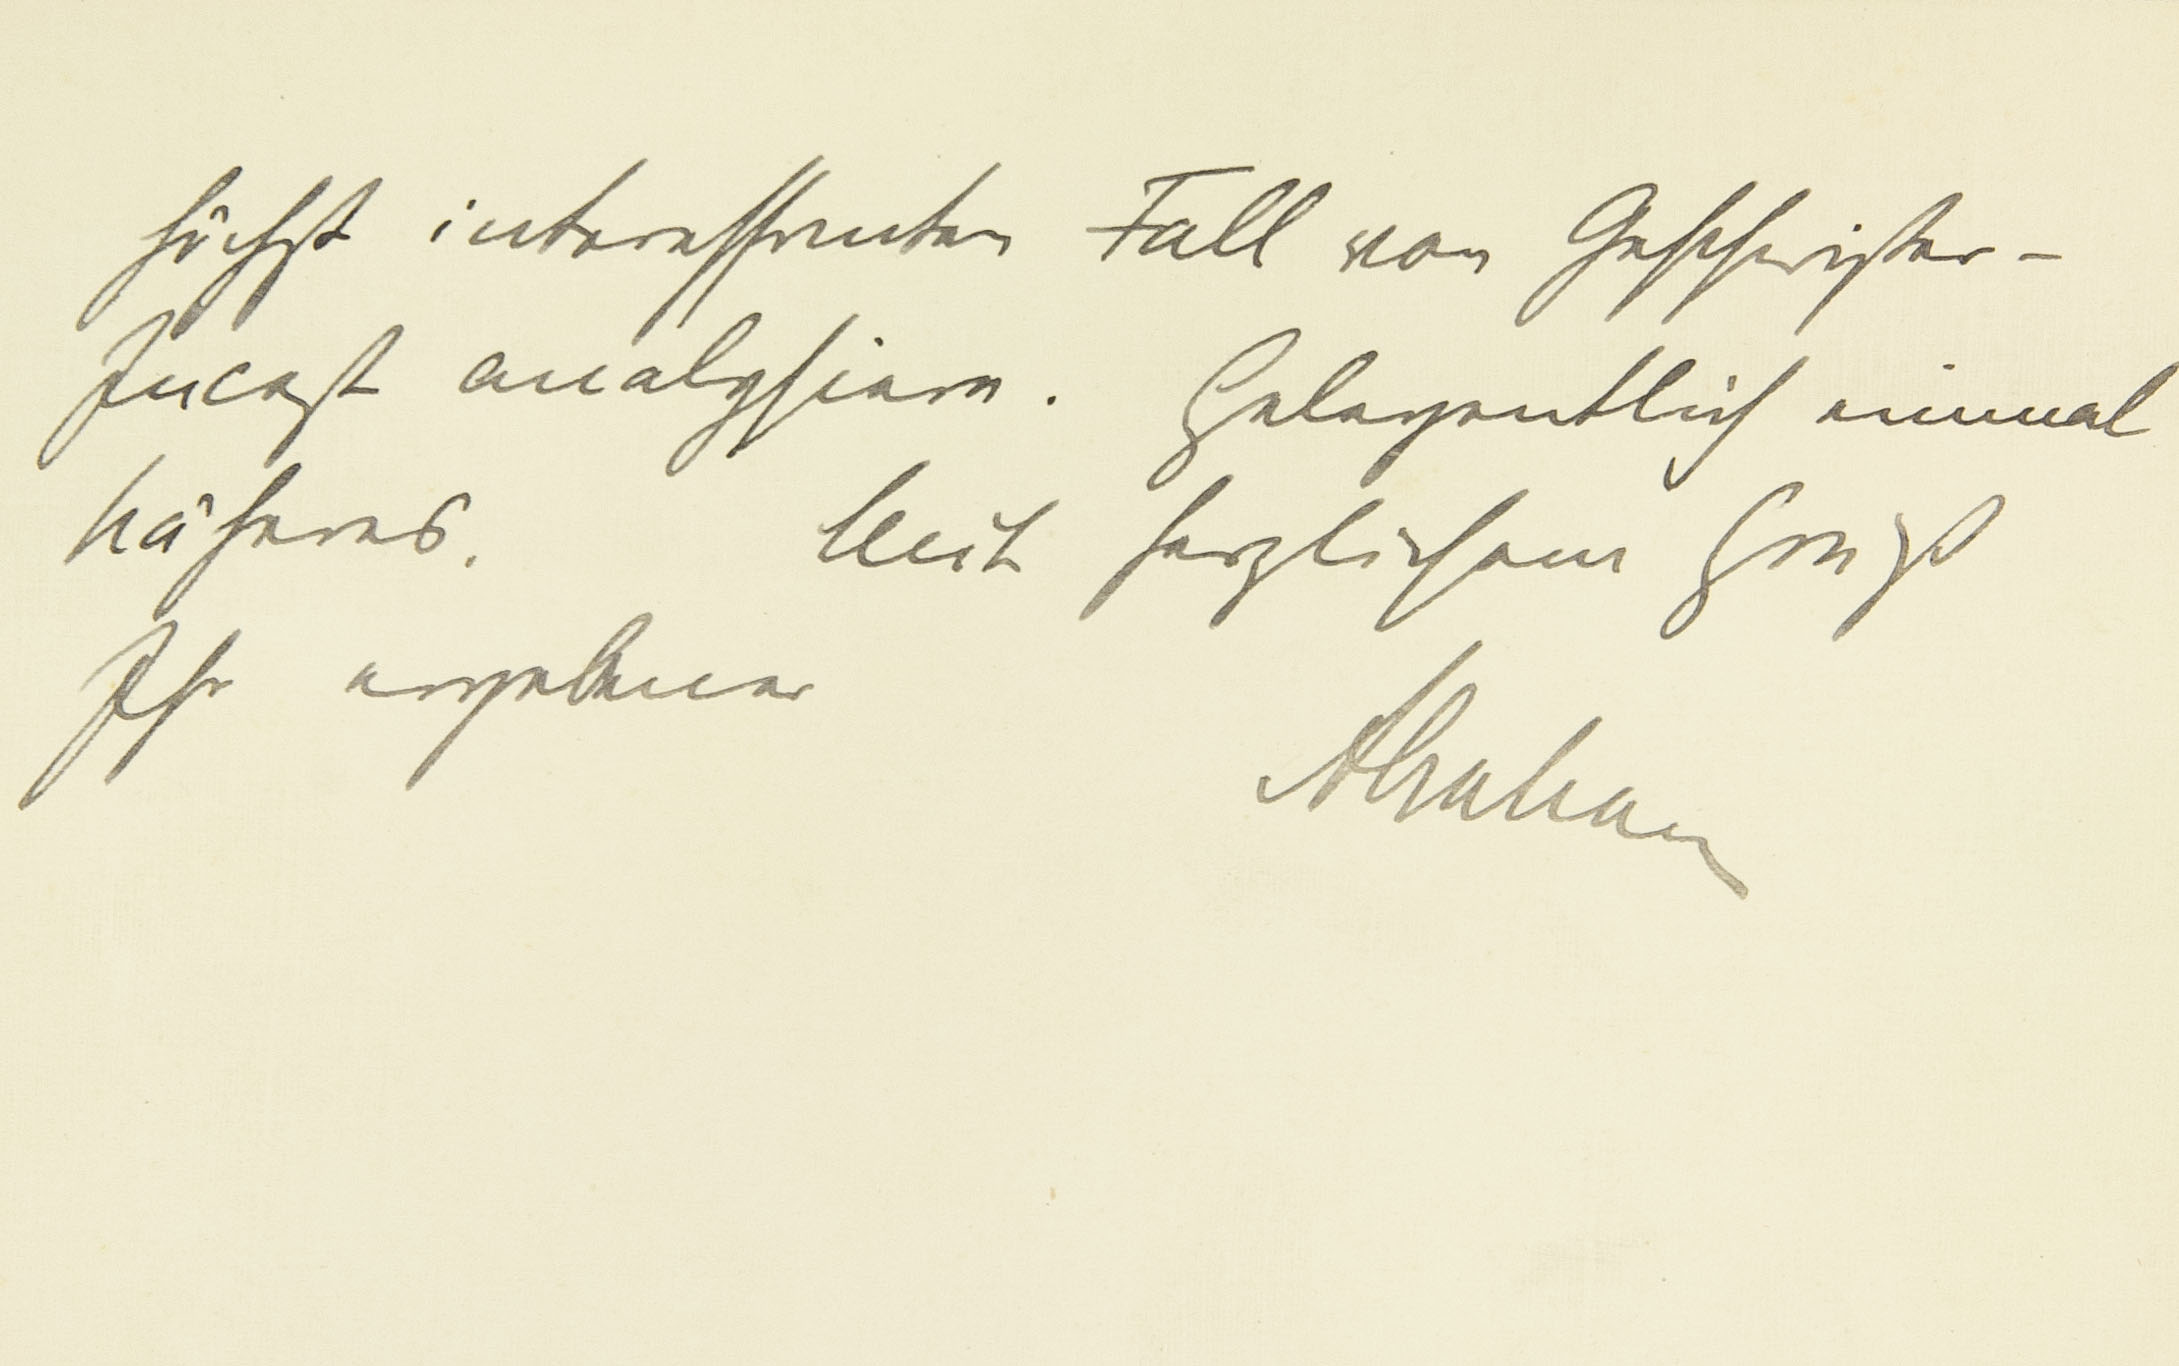 höchst interessanten Fall von Geschwister-
Incest analysiren. Gelegentlich einmal
Näheres. Mit herzlichem Gruß
Ihr ergebener
Abraham